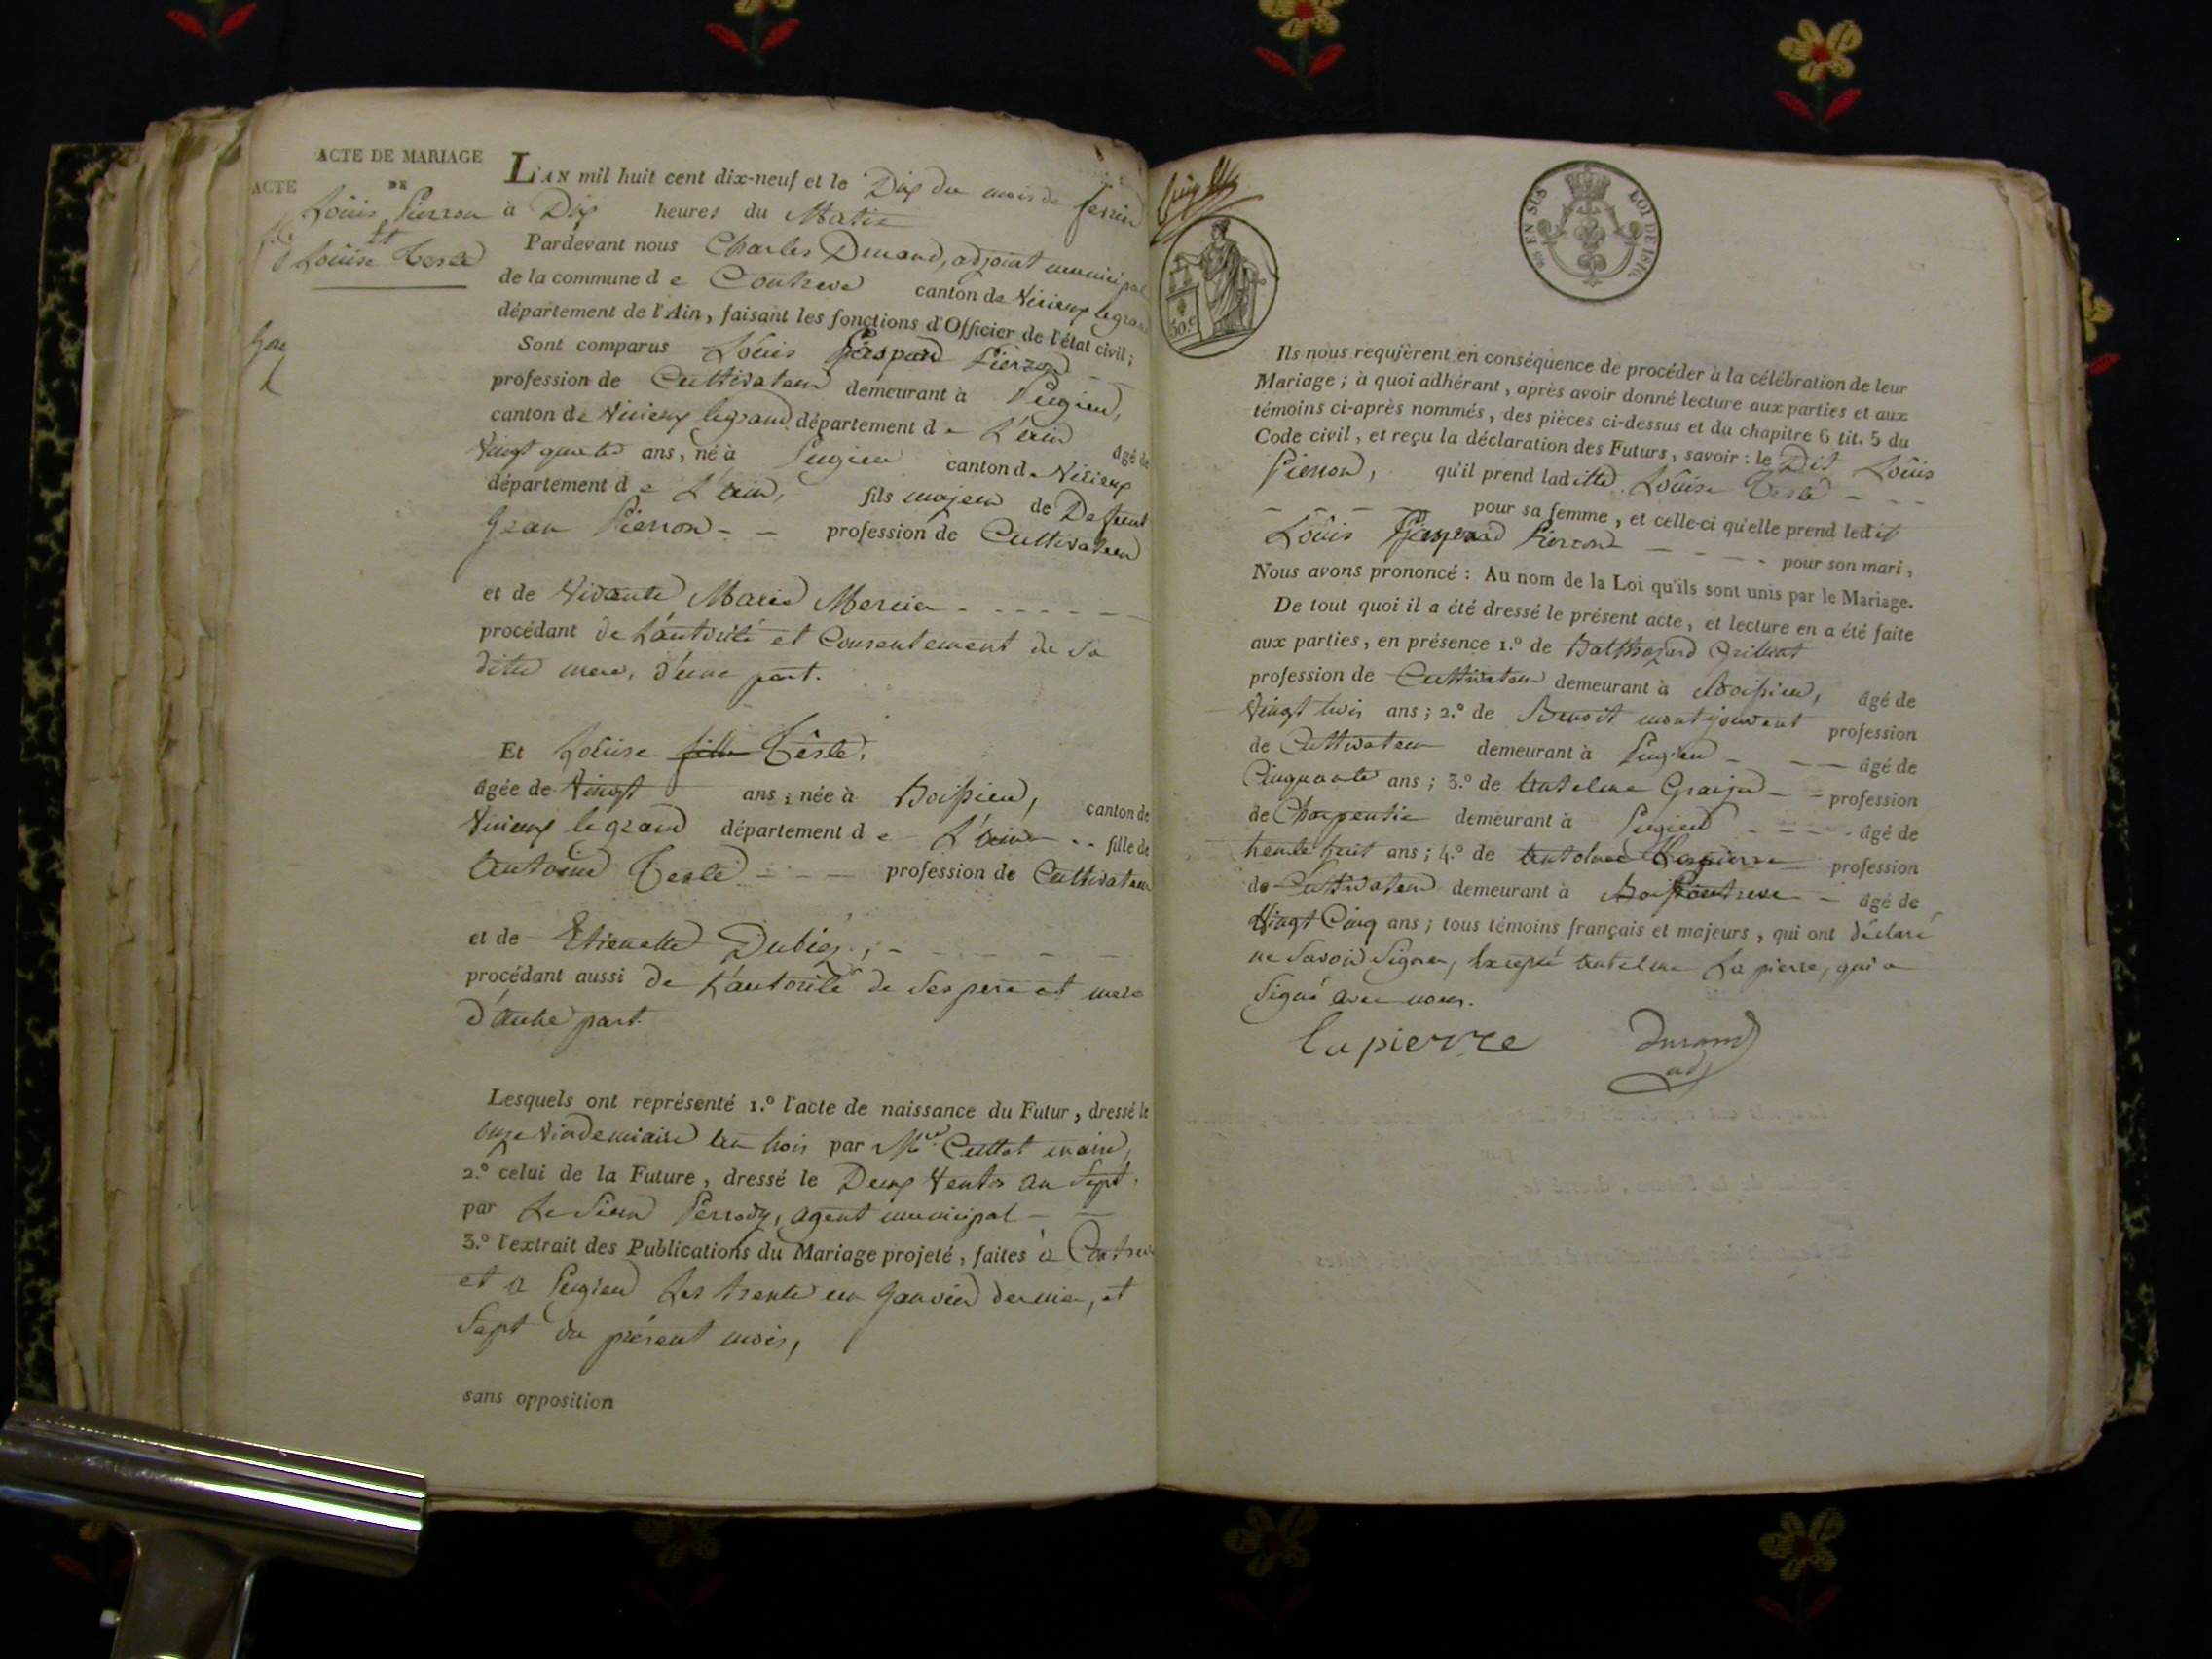 ACTE DE MARIAGE
ACTE
DE
Loüis Pierron
et
Loüise Teste
L'AN mil huit cent dix-neuf et le Dix du mois de fevrier
à Dix heures du Matin
Pardevant nous Charles Durand, adjoint municipal
de la commune d e Contreve canton de Virieux legrand
département de l'Ain, faisant les fonctions d'Officier de l'état civil;
Sont comparus Loüis Gaspard Pierron
profession de Cultivateur demeurant à Pugieu,
canton de Virieux legrand département d e L'ain âgé de
Vingt quatre ans, né à Pugieu canton de Virieux
département d e L'ain, fils majeur de Defunt
Jean Pierron - - profession de Cultivateur
et de Vivante Marie Mercier
procédant de L'autorité et Consentement de Sa
ditte mere, d'une part.
Et Loüise fille Teste,
âgée de Vingt ans, née à Boissieu, canton de
Virieux legrand département d e L'ain fille de
Antoine Teste profession de Cultivateur
et de Etienette Dubiez, -
procédant aussi de L'autorité de Ses pere et mere
d'autre part.
Lesquels ont représenté 1.º l'acte de naissance du Futur, dressé le
onze Vindemiaire an trois par Mre Cuttat maire,
2.º celui de la Future, dressé le Deux Ventos an Sept.
par Le Sieur Perrody, agent municipal
3.º l'extrait des Publications du Mariage projeté, faites à Contreve
et a Pugieu Les trente un Janvier dernier, et
Sept du présent mois,
sans opposition
EN SUS LOI DE 1816.
50.c
Ils nous requièrent en conséquence de procéder à la célébration de leur
Mariage; à quoi adhérant, après avoir donné lecture aux parties et aux
témoins ci-après nommés, des pièces ci-dessus et du chapitre 6 tit. 5 du
Code civil, et reçu la déclaration des Futurs, savoir: le Dit Loüis
Pierron, qu'il prend laditte Loüise Teste - - -
pour sa femme, et celle-ci qu'elle prend ledit
Loüis Gaspard Pierron pour son mari,
Nous avons prononcé: Au nom de la Loi qu'ils sont unis par le Mariage.
De tout quoi il a été dressé le présent acte, et lecture en a été faite
aux parties, en présence 1.º de Balthazard
profession de Cultivateur demeurant à Boissieu, âgé de
Vingt trois ans; 2.º de Benoit montjouvent profession
de Cultivateur demeurant à Pugieu - - - âgé de
Cinquante ans; 3.º de antelme profession
de Charpentier demeurant à Pugieu âgé de
trente huit ans; 4.º de antelme Lapierre profession
de Cultivateur demeurant à Contreve âgé de
Vingt Cinq ans; tous témoins français et majeurs, qui ont déclaré
ne Savoir Signer, Excepté antelme La pierre, qui a
Signé avec nous.
lapierre Durand
adj